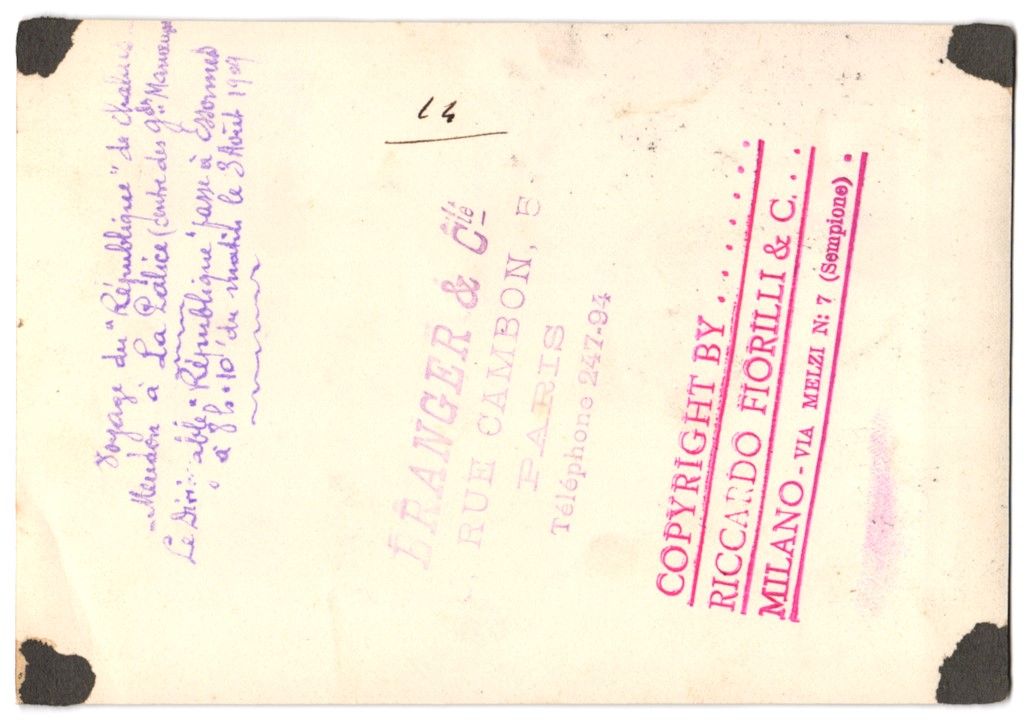 Voyage du "République" de Chalais-
-Meudon à La Palice (centre des gdes Manœuvres
Le Dirigeable "République" passe à Essonnes
à 8h.10' du matin le 3 Août 1909
14
ERANGER & Cie
RUE CAMBON, 5
PARIS
Téléphone 247-94
COPYRIGHT BY ........
RICCARDO FIORILLI & C...
MILANO - VIA MELZI N: 7 (Sempione).